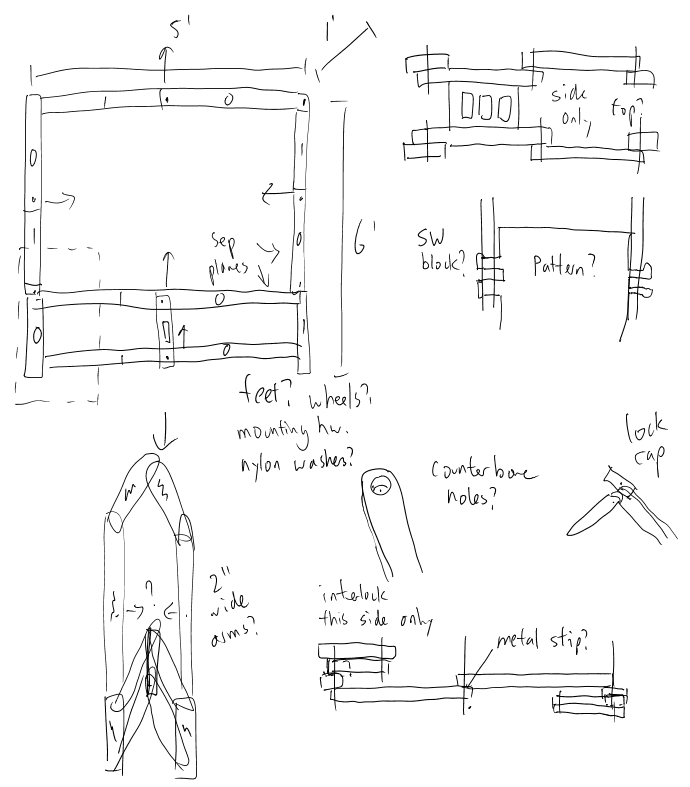 5'
1'
6'
sep
planes
side
only
top?
SW
block?
Pattern?
feet? wheels?
mounting hw.
nylon washes?
counterbore
holes?
lock
cap
2"
wide
arms?
?
interlock
this side only
metal stip?